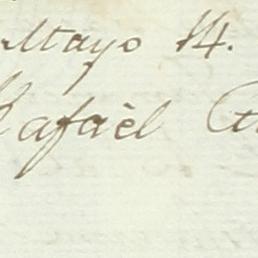 Mayo 14.
Rafaèl